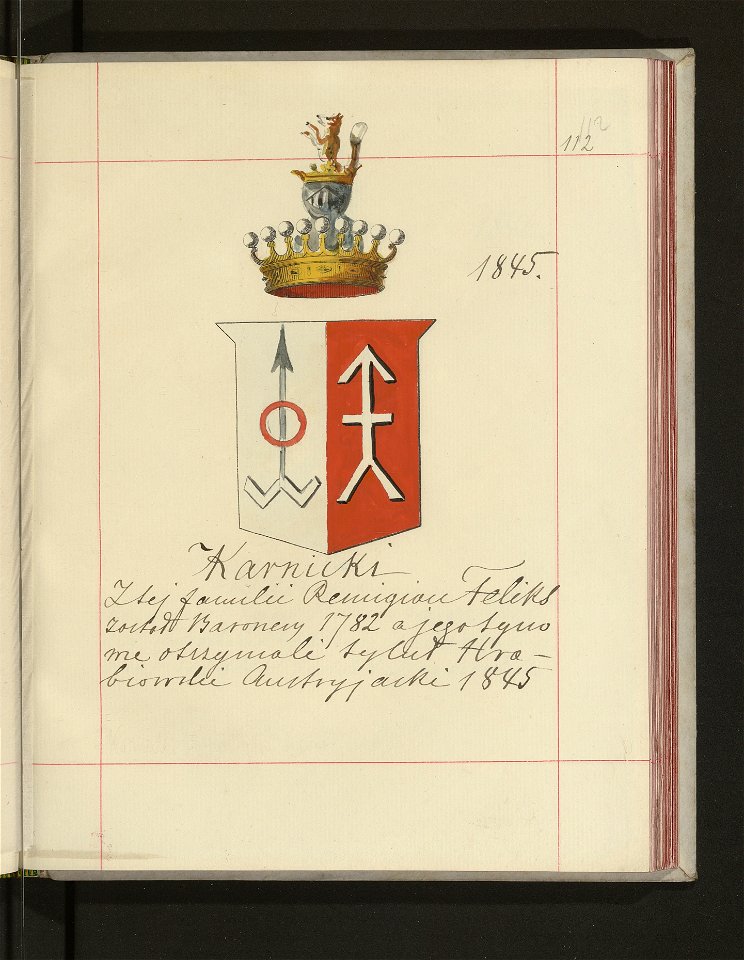 112
112
1845.
Karnicki
Z tej familii Remigian Feliks
został Baronem 1782 a jego syno
wie otrzymali tytuł Hra-
biowski Austryjacki 1845